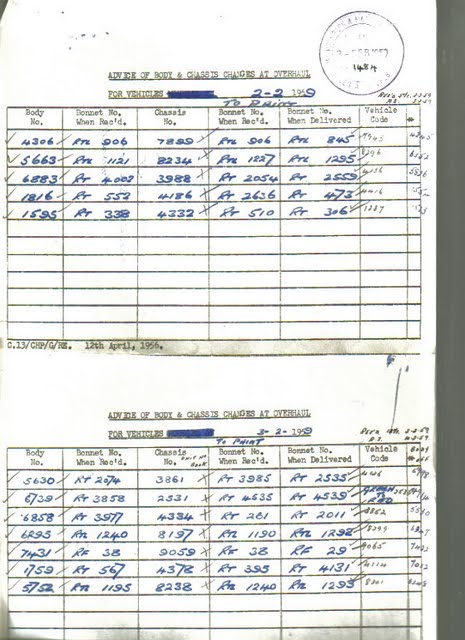 1484
ADVICE OF BODY & CHASSIS CHANGES AT OVERHAUL
FOR VEHICLES 2-2-1959
TO PAINT
Body No. Bonnet No. When Rec'd. Chassis No. Bonnet No. When Rec'd. Bonnet No. When Delivered Vehicle Code
4306 RTL 906 7889 RTL 906 RTL 845 7543
5663 RTL 1121 8234 RTL 1227 RTL 1295 8296
6883 RT 4002 3988 RT 2054 RT 2559 4136
1816 RT 552 4186 RT 2636 RT 473 4416
1595 RT 338 4332 RT 510 RT 306 1287
C.13/CHP/G/RE. 12th April, 1956.
ADVICE OF BODY & CHASSIS CHANGES AT OVERHAUL
FOR VEHICLES 3-2-1959
TO PAINT
Body No. Bonnet No. When Rec'd. Chassis No. Bonnet No. When Rec'd. Bonnet No. When Delivered Vehicle Code Body
5630 RT 2074 3861 RT 3985 RT 2535
6739 RT 3858 2531 RT 4635 RT 4539 GREEN TO RED
6858 RT 3977 4334 RT 281 RT 2011 3862
6295 RTL 1240 8197 RTL 1190 RTL 1298 8299
7431 RF 38 9059 RF 38 RF 29 9065
1759 RT 567 4378 RT 395 RT 4131 4114 7012
5752 RTL 1195 8238 RTL 1240 RTL 1293 8201